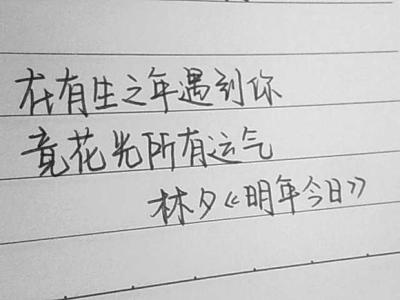 在有生之年遇到你
竟花光所有运气
林夕《明年今日》